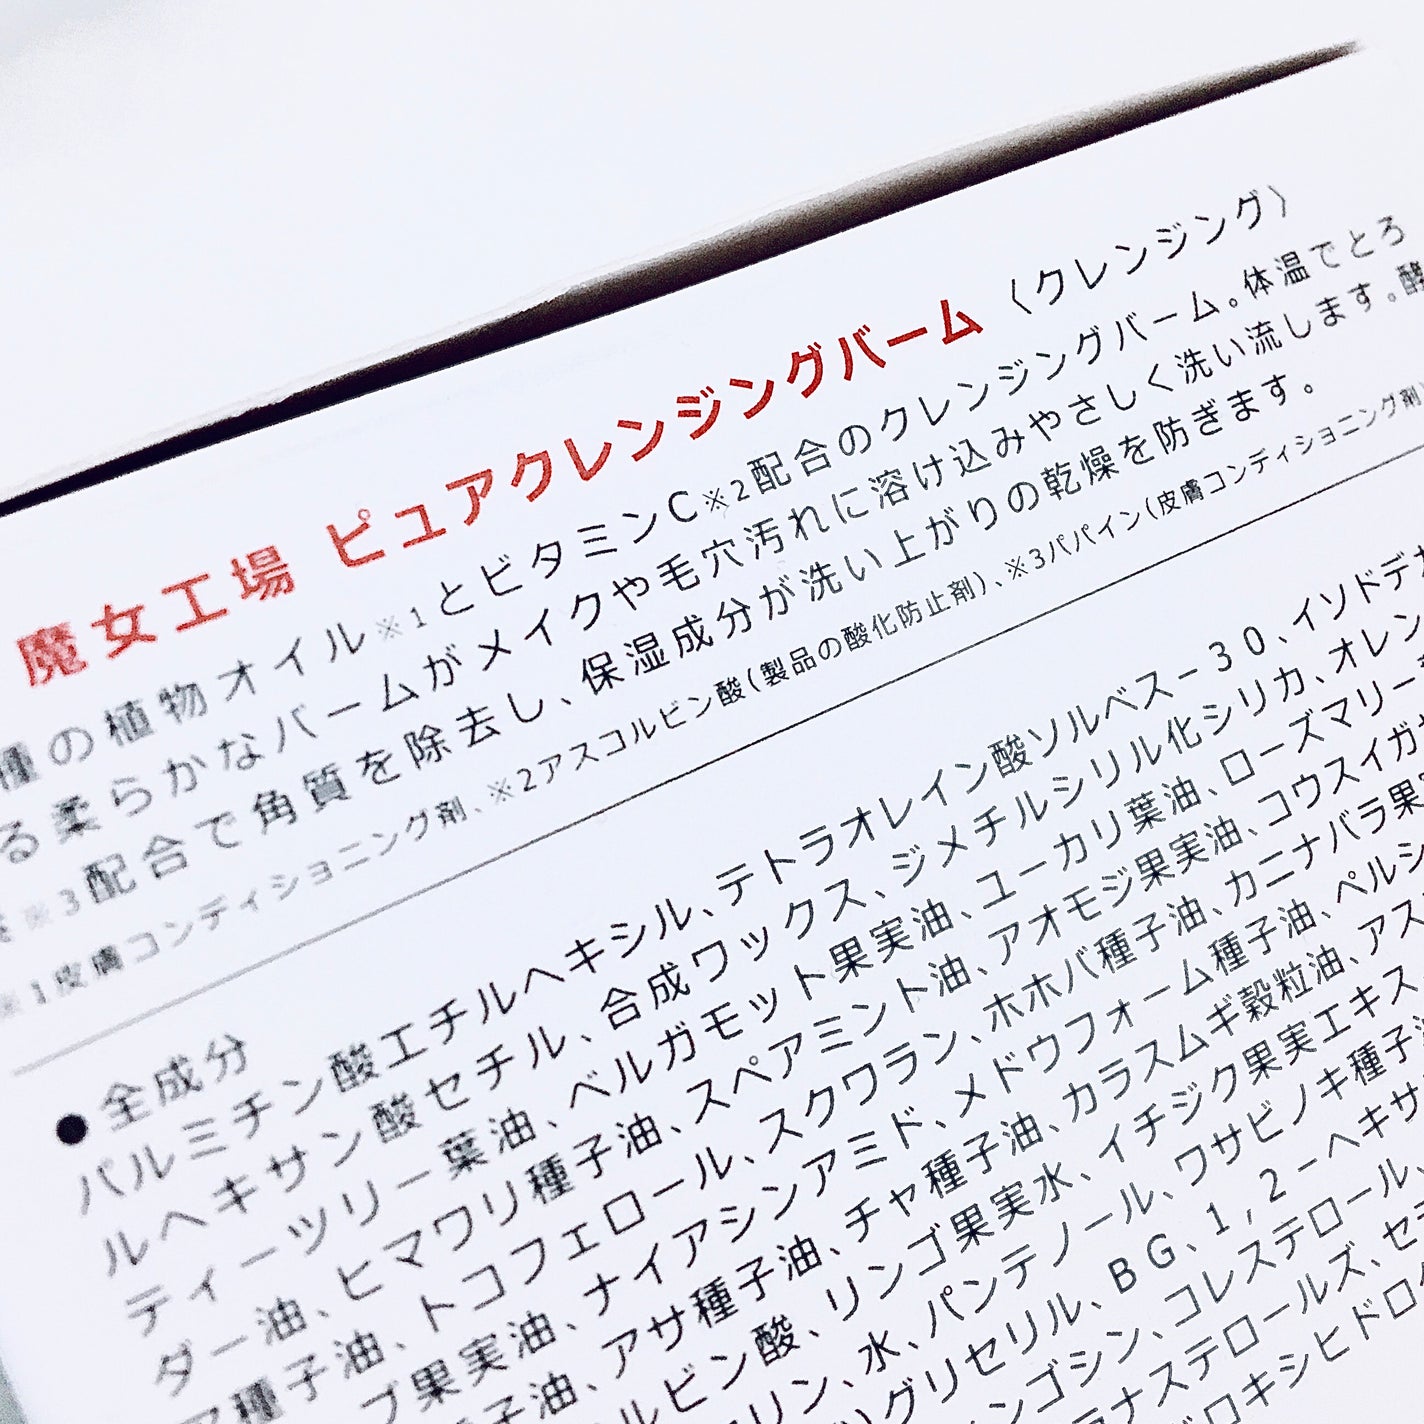 魔女工場 ピュアクレンジングバーム 〈クレンジング〉
種の植物オイル※1とビタミンC※2配合のクレンジングバーム。体温でとろ
る柔らかなバームがメイクや毛穴汚れに溶け込みやさしく洗い流します。酵
※3配合で角質を除去し、保湿成分が洗い上がりの乾燥を防ぎます。
※1皮膚コンディショニング剤、※2アスコルビン酸(製品の酸化防止剤)、※3パパイン(皮膚コンディショニング剤)
●全成分
パルミチン酸エチルヘキシル、テトラオレイン酸ソルベス-30、イソドデカ
ルヘキサン酸セチル、合成ワックス、ジメチルシリル化シリカ、オレン
ティーツリー葉油、ベルガモット果実油、ユーカリ葉油、ローズマリー
ダー油、ヒマワリ種子油、スペアミント油、アオモジ果実油、コウスイガヤ
種子油、トコフェロール、スクワラン、ホホバ種子油、カニナバラ果実
ブ果実油、ナイアシンアミド、メドウフォーム種子油、ペルシ
子油、アサ種子油、チャ種子油、カラスムギ穀粒油、アス
ルビン酸、リンゴ果実水、イチジク果実エキス
リン、水、パンテノール、ワサビノキ種子油
グリセリル、BG、1,2-ヘキサ
ンゴシン、コレステロール、
ナステロールズ、セ
ロキシヒドロ